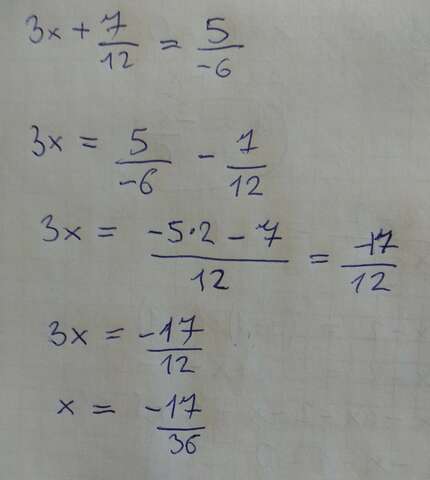 3x + 7/12 = 5/-6
3x = 5/-6 - 7/12
3x = (-5·2 - 7)/12 = -17/12
3x = -17/12
x = -17/36